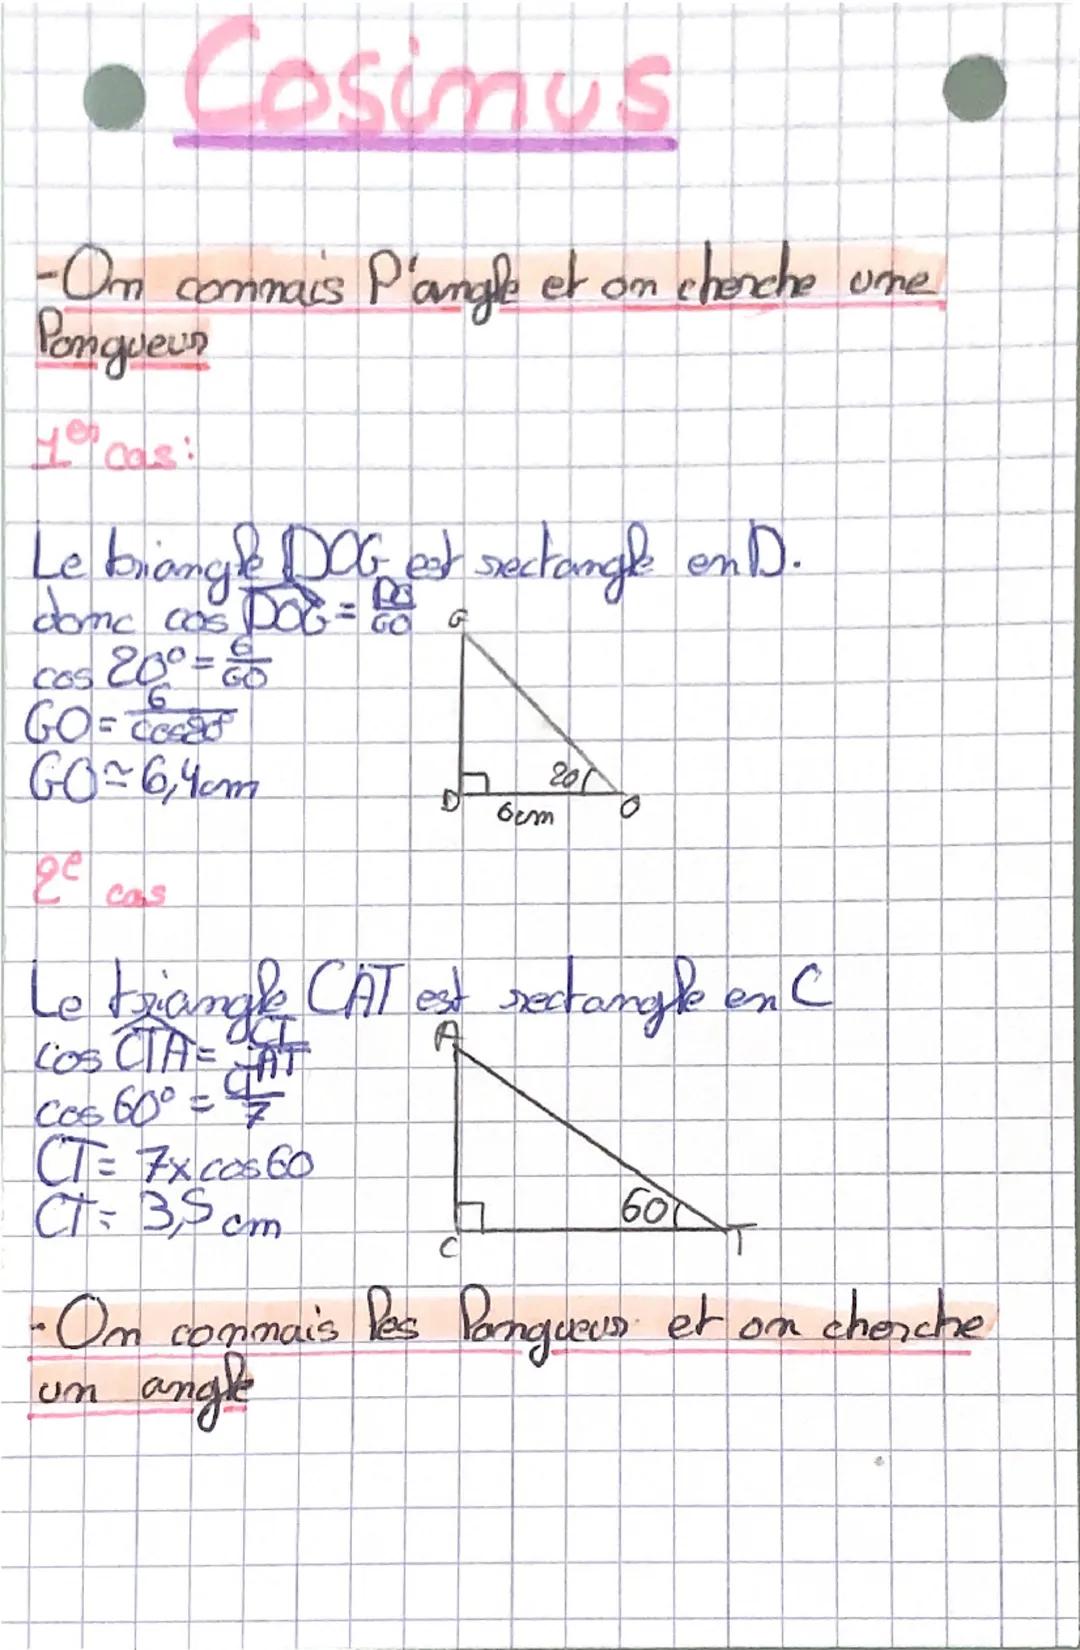 Cosinus
-On connais l'angle et on cherche une
longueur
1er cas:
Le triangle DOG est rectangle en D.
donc cos DOG = DO/GO
cos 20° = 6/GO
GO = 6/cos20°
GO ≃ 6,4cm
G
20
D
6cm
O
2e cas
Le triangle CAT est rectangle en C
cos CTA = CT/AT
cos 60° = CT/7
CT = 7x cos 60
CT = 3,5 cm
A
60
C
T
-On connais les longueur et on cherche
un angle